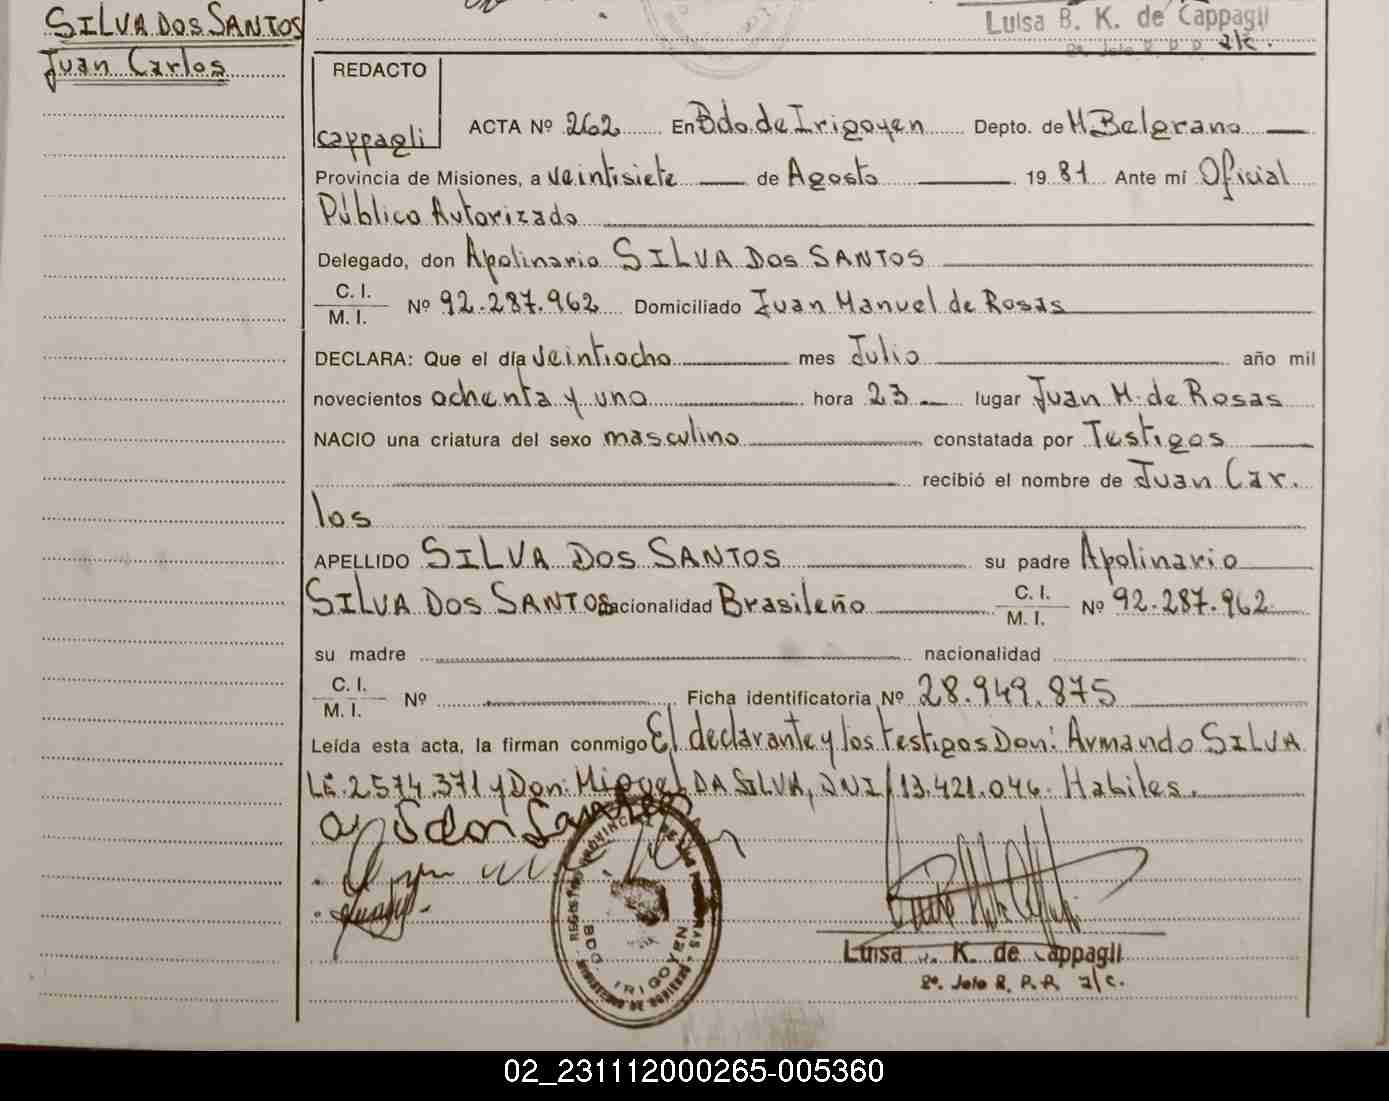 SILVA DOS SANTOS
Juan Carlos
Luisa B. K. de Cappagli
a/c.
REDACTO
Cappagli
ACTA Nº 262 En Bdo. de Irigoyen Depto. de M Belgrano
Provincia de Misiones, a veintisiete de Agosto 1981 Ante mí Oficial
Público Autorizado
Delegado, don Apolinario SILVA DOS SANTOS
C. I.
M. I. Nº 92.287.962 Domiciliado Juan Manuel de Rosas
DECLARA: Que el día veintiocho mes Julio año mil
novecientos ochenta y uno hora 23 lugar Juan M. de Rosas
NACIO una criatura del sexo masculino constatada por Testigos
recibió el nombre de Juan Car.
los
APELLIDO SILVA DOS SANTOS su padre Apolinario
SILVA DOS SANTOS nacionalidad Brasileño C. I. M. I. Nº 92.287.962
su madre nacionalidad
C. I.
M. I. Nº Ficha identificatoria Nº 28.949.875
Leída esta acta, la firman conmigo El declarante y los testigos Don: Armando SILVA
LE. 2574.371 y Don: Miguel DA SILVA, DNI/13.421.046. Habiles.
REGISTRO PROVINCIAL DE LAS PERSONAS
BDO. IRIGOYEN
MINISTERIO DE GOBIERNO
Luisa B. K. de Cappagli
2º. Jefe R. P. P. a/c.
02_231112000265-005360